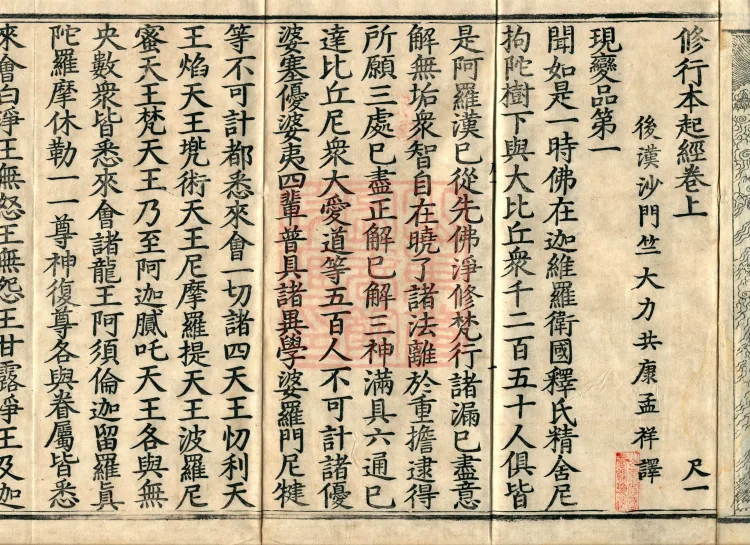 修行本起經卷上　尺一
後漢沙門竺大力共康孟祥譯
現變品第一
聞如是一時佛在迦維羅衛國釋氏精舍尼
拘陀樹下與大比丘衆千二百五十人俱皆
是阿羅漢已從先佛淨修梵行諸漏已盡意
解無垢衆智自在曉了諸法離於重擔逮得
所願三處已盡正解已解三神滿具六通已
達比丘尼衆大愛道等五百人不可計諸優
婆塞優婆夷四輩普具諸異學婆羅門尼揵
等不可計都悉來會一切諸四天王忉利天
王焰天王兠術天王尼摩羅提天王波羅尼
蜜天王梵天王乃至阿迦膩吒天王各與無
央數衆皆悉來會諸龍王阿須倫迦留羅眞
陀羅摩休勒一一尊神復尊各與眷屬皆悉
來會白淨王無怒王無怨王甘露淨王及迦